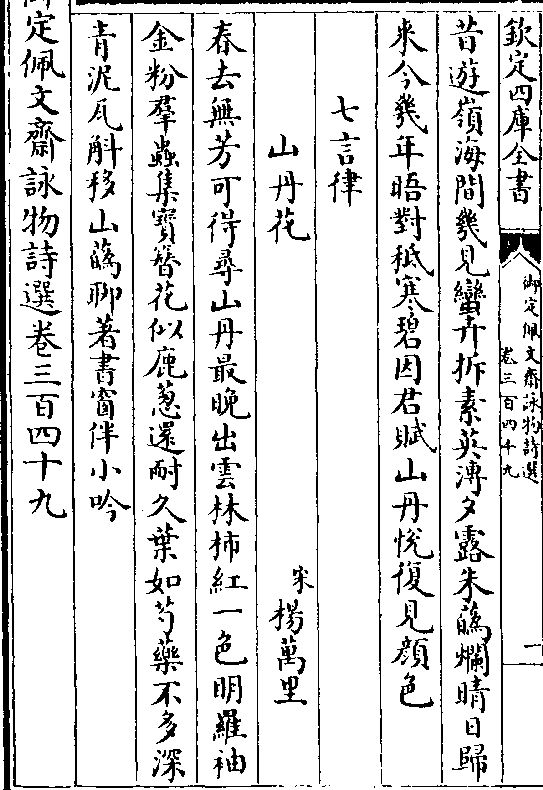 欽定四庫全書
御定佩文齋詠物詩選
卷三百四十九
二
昔遊嶺海間幾見蠻卉拆素英溥夕露朱蘤爛晴日歸
來今幾年晤對秪寒碧因君賦山丹恍復見顔色
七言律
山丹花
宋 楊萬里
春去無芳可得尋山丹最晚出雲林柿紅一色明羅袖
金粉羣蟲集寳簪花似鹿蔥還耐久葉如芍藥不多深
青泥瓦斛移山蘤聊著書窗伴小吟
御定佩文齋詠物詩選卷三百四十九